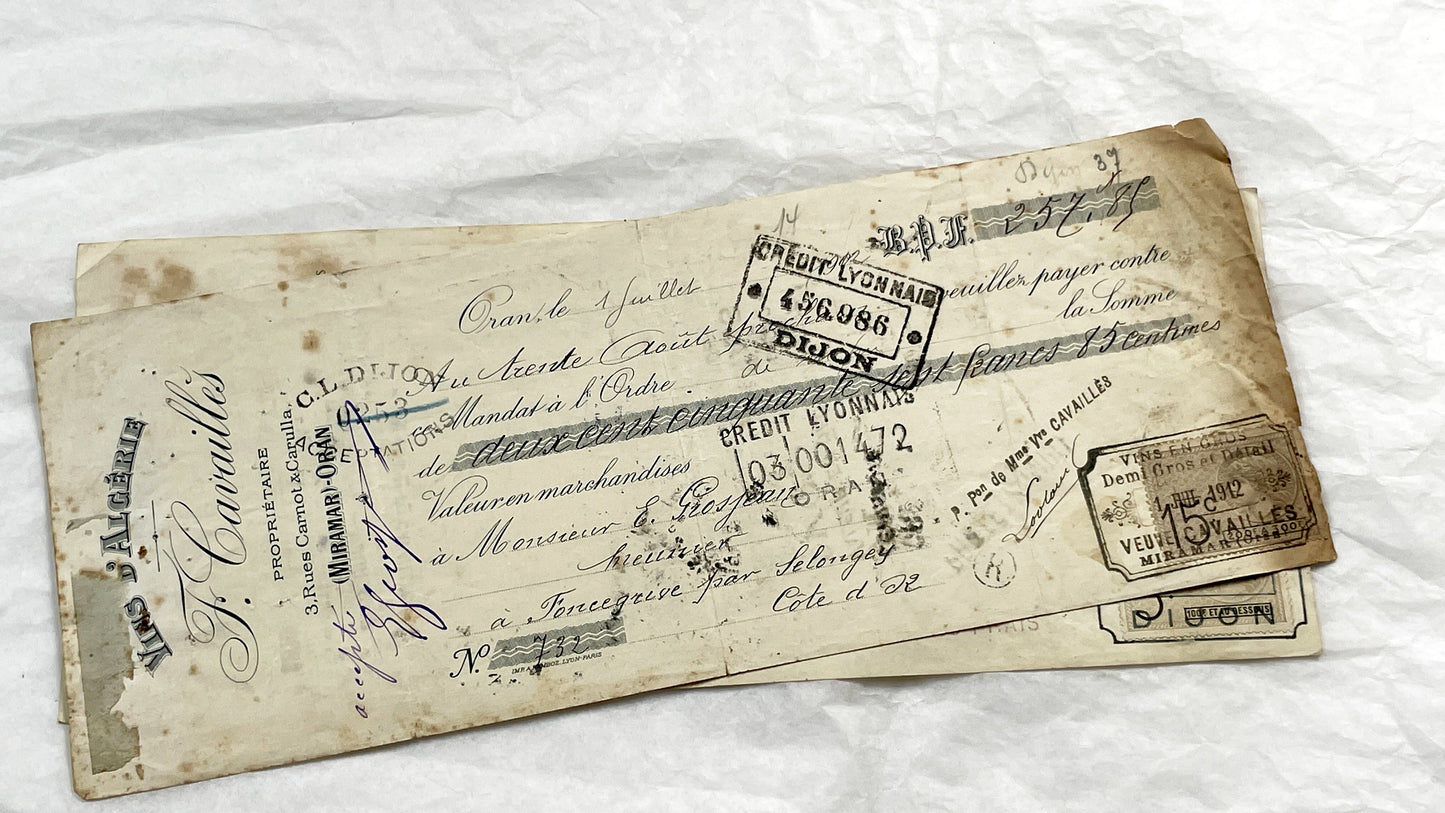 VINS D'ALGÉRIE
F. Cavaillès
PROPRIÉTAIRE
3, Rues Carnot & Capulla,
A
(MIRAMAR)-ORAN
accepté
C.L. DIJON
14
Dijon 37
B.P.F. 257,85
Oran, le 1 Juillet
veuillez payer contre
CRÉDIT LYONNAIS
456.986
DIJON
Au trente Août
la Somme
ce Mandat à l'Ordre de
de deux cent cinquante sept francs 85 centimes
Valeur en marchandises
CREDIT LYONNAIS
03 001472
ORAN
à Monsieur E. Grosjean
meunier
à Foncegrive par Selongey
Côte d'Or
No 732
P. Pon de Mme Vve CAVAILLÈS
VINS EN GROS
Demi Gros et Détail
1 JUIL 1912
15 c
VEUVE CAVAILLÈS
MIRAMAR
100F ET AU DESSUS
DIJON